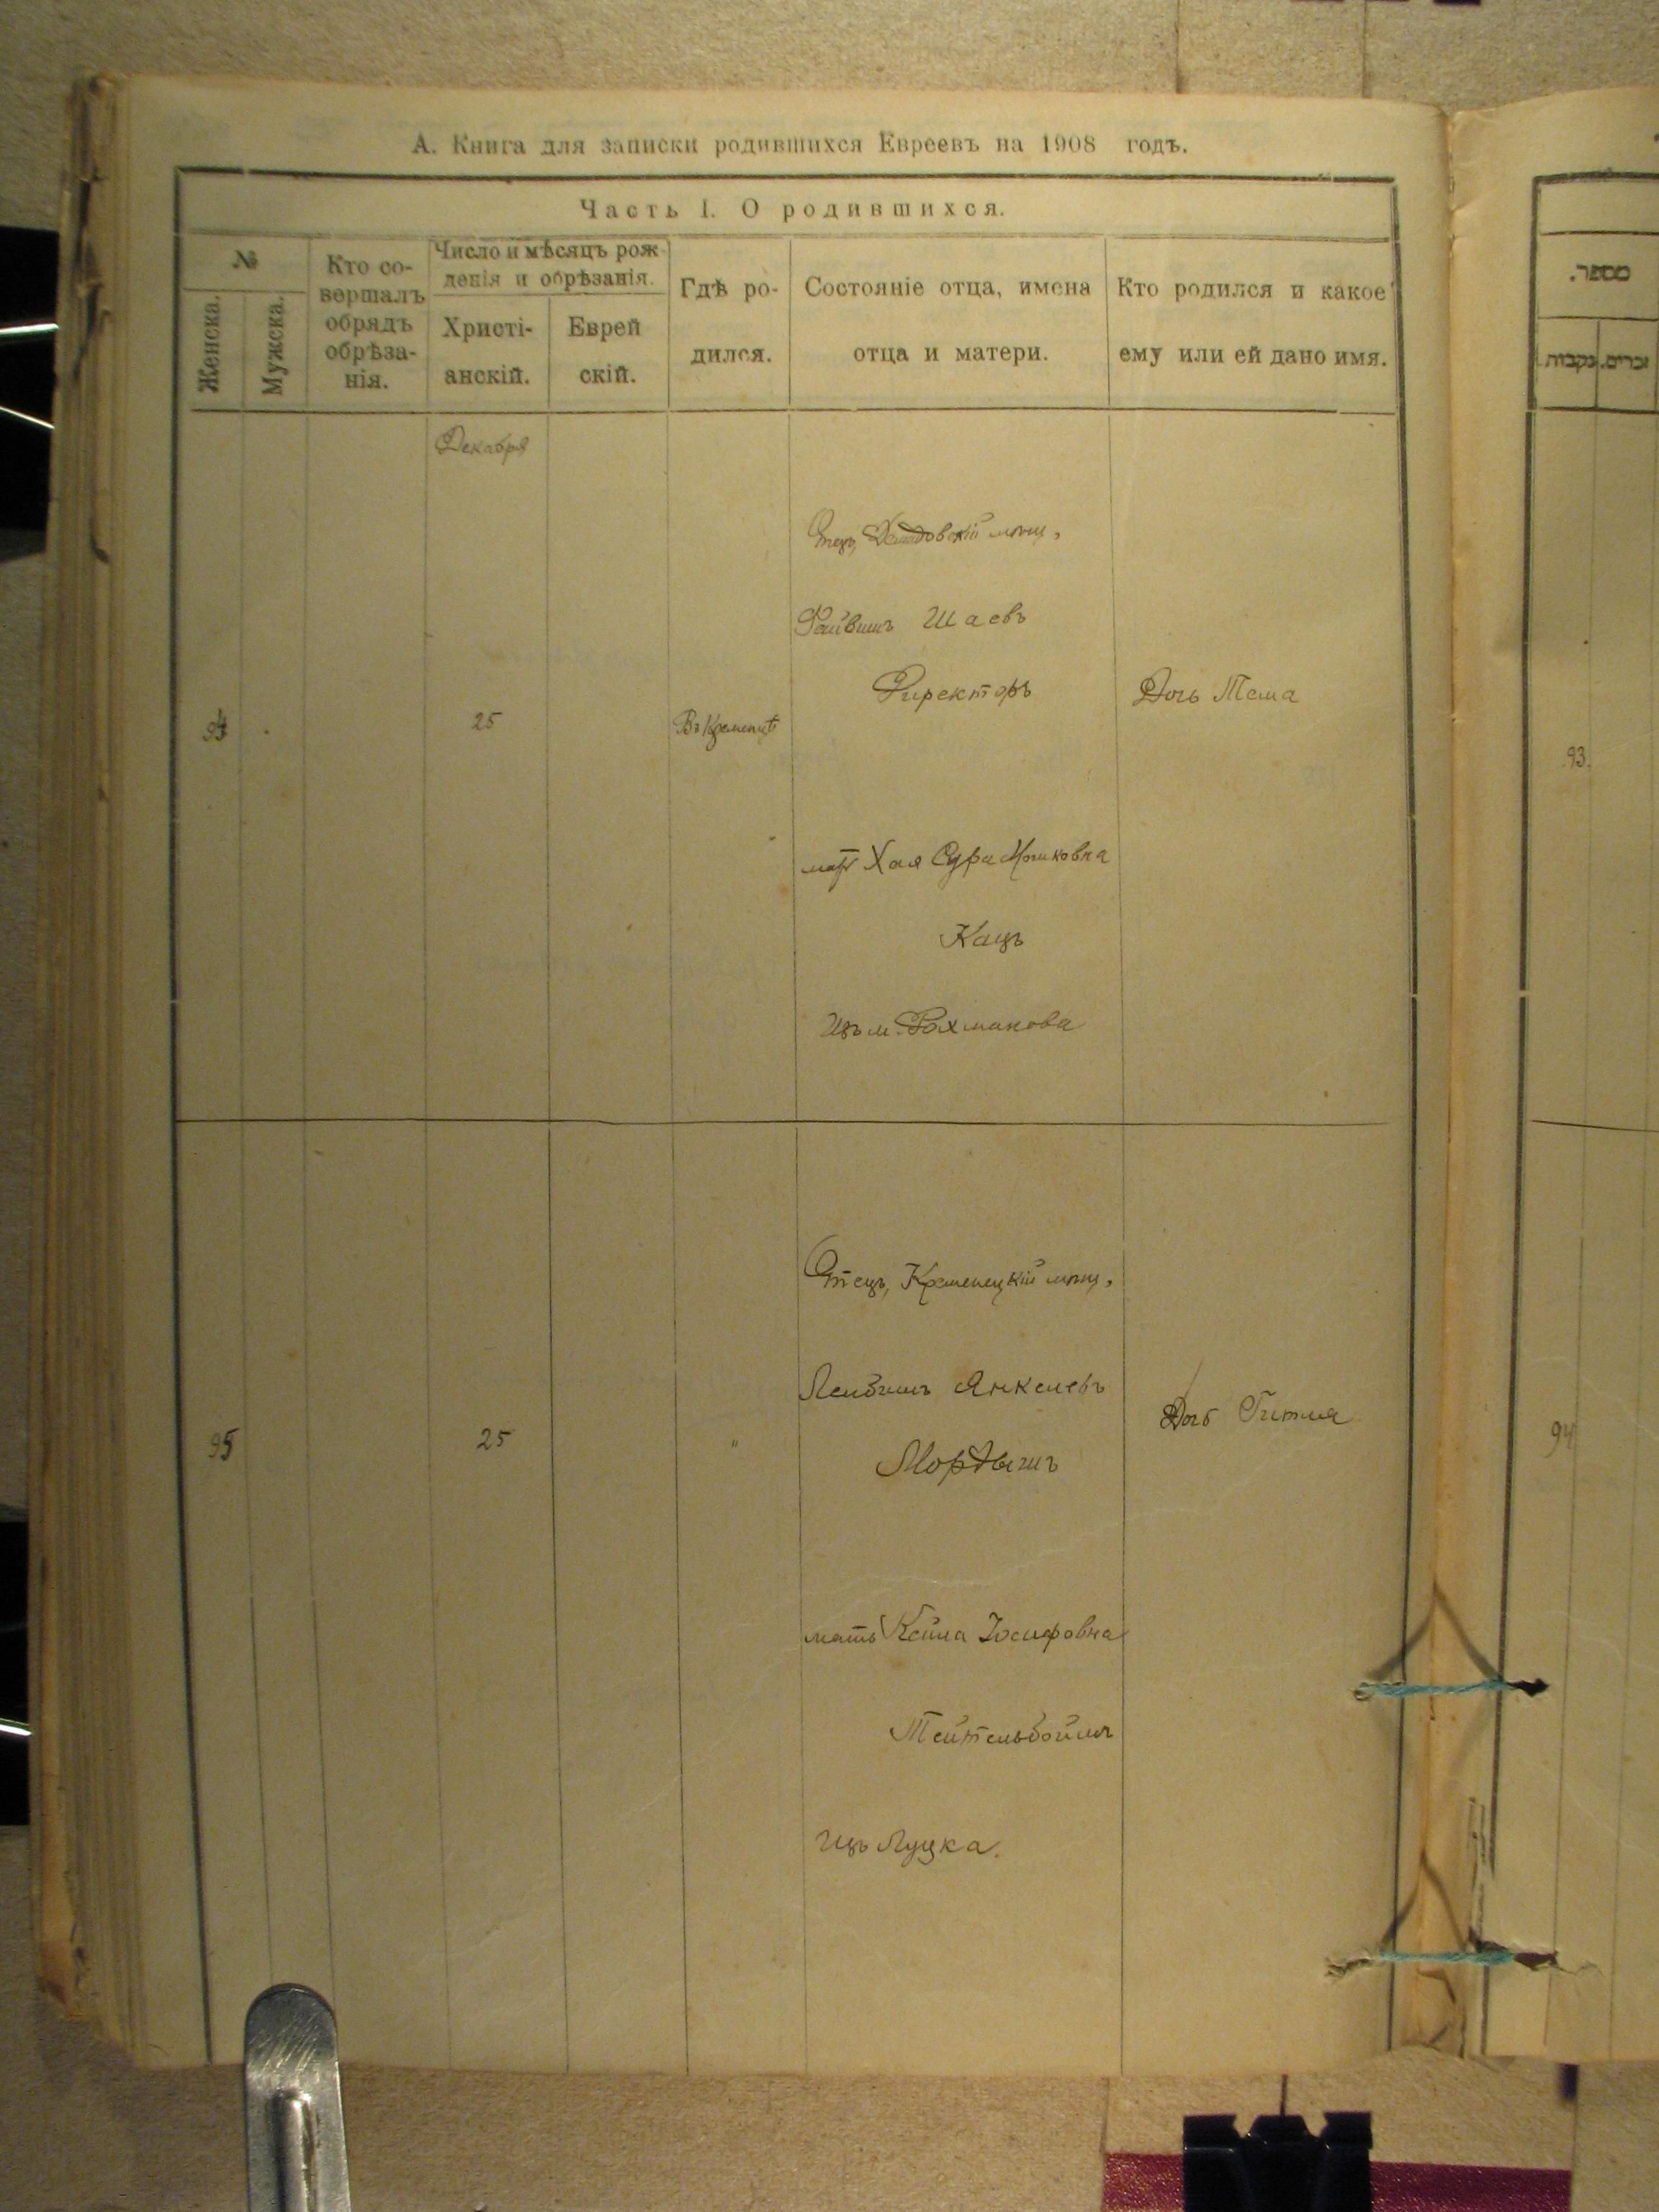 А. Книга для записки родившихся Евреевъ на 1908 годъ.
Часть I. О родившихся.
№
Женска.
Мужска.
Кто со-
вершалъ
обрядъ
обрѣза-
нія.
Число и мѣсяцъ рож-
денія и обрѣзанія.
Христі-
анскій.
Еврей
скій.
Гдѣ ро-
дился.
Состояніе отца, имена
отца и матери.
Кто родился и какое
ему или ей дано имя.
Декабря
Отецъ, мѣщ,
Файвишъ Шаевъ
Директоръ
94
25
Въ Кременцѣ
Дочь Тема
мать Хая Сура Мошковна
Кацъ
Изъ м. Рахманова
Отецъ, Кременецкій мѣщ,
Лейбишъ Янкелевъ
Мордышъ
95
25
"
Дочь Гитля
мать Кейла Іосифовна
Тейтельбоймъ
Изъ Луцка.
מספר.
נקבות
זכרים.
93.
94